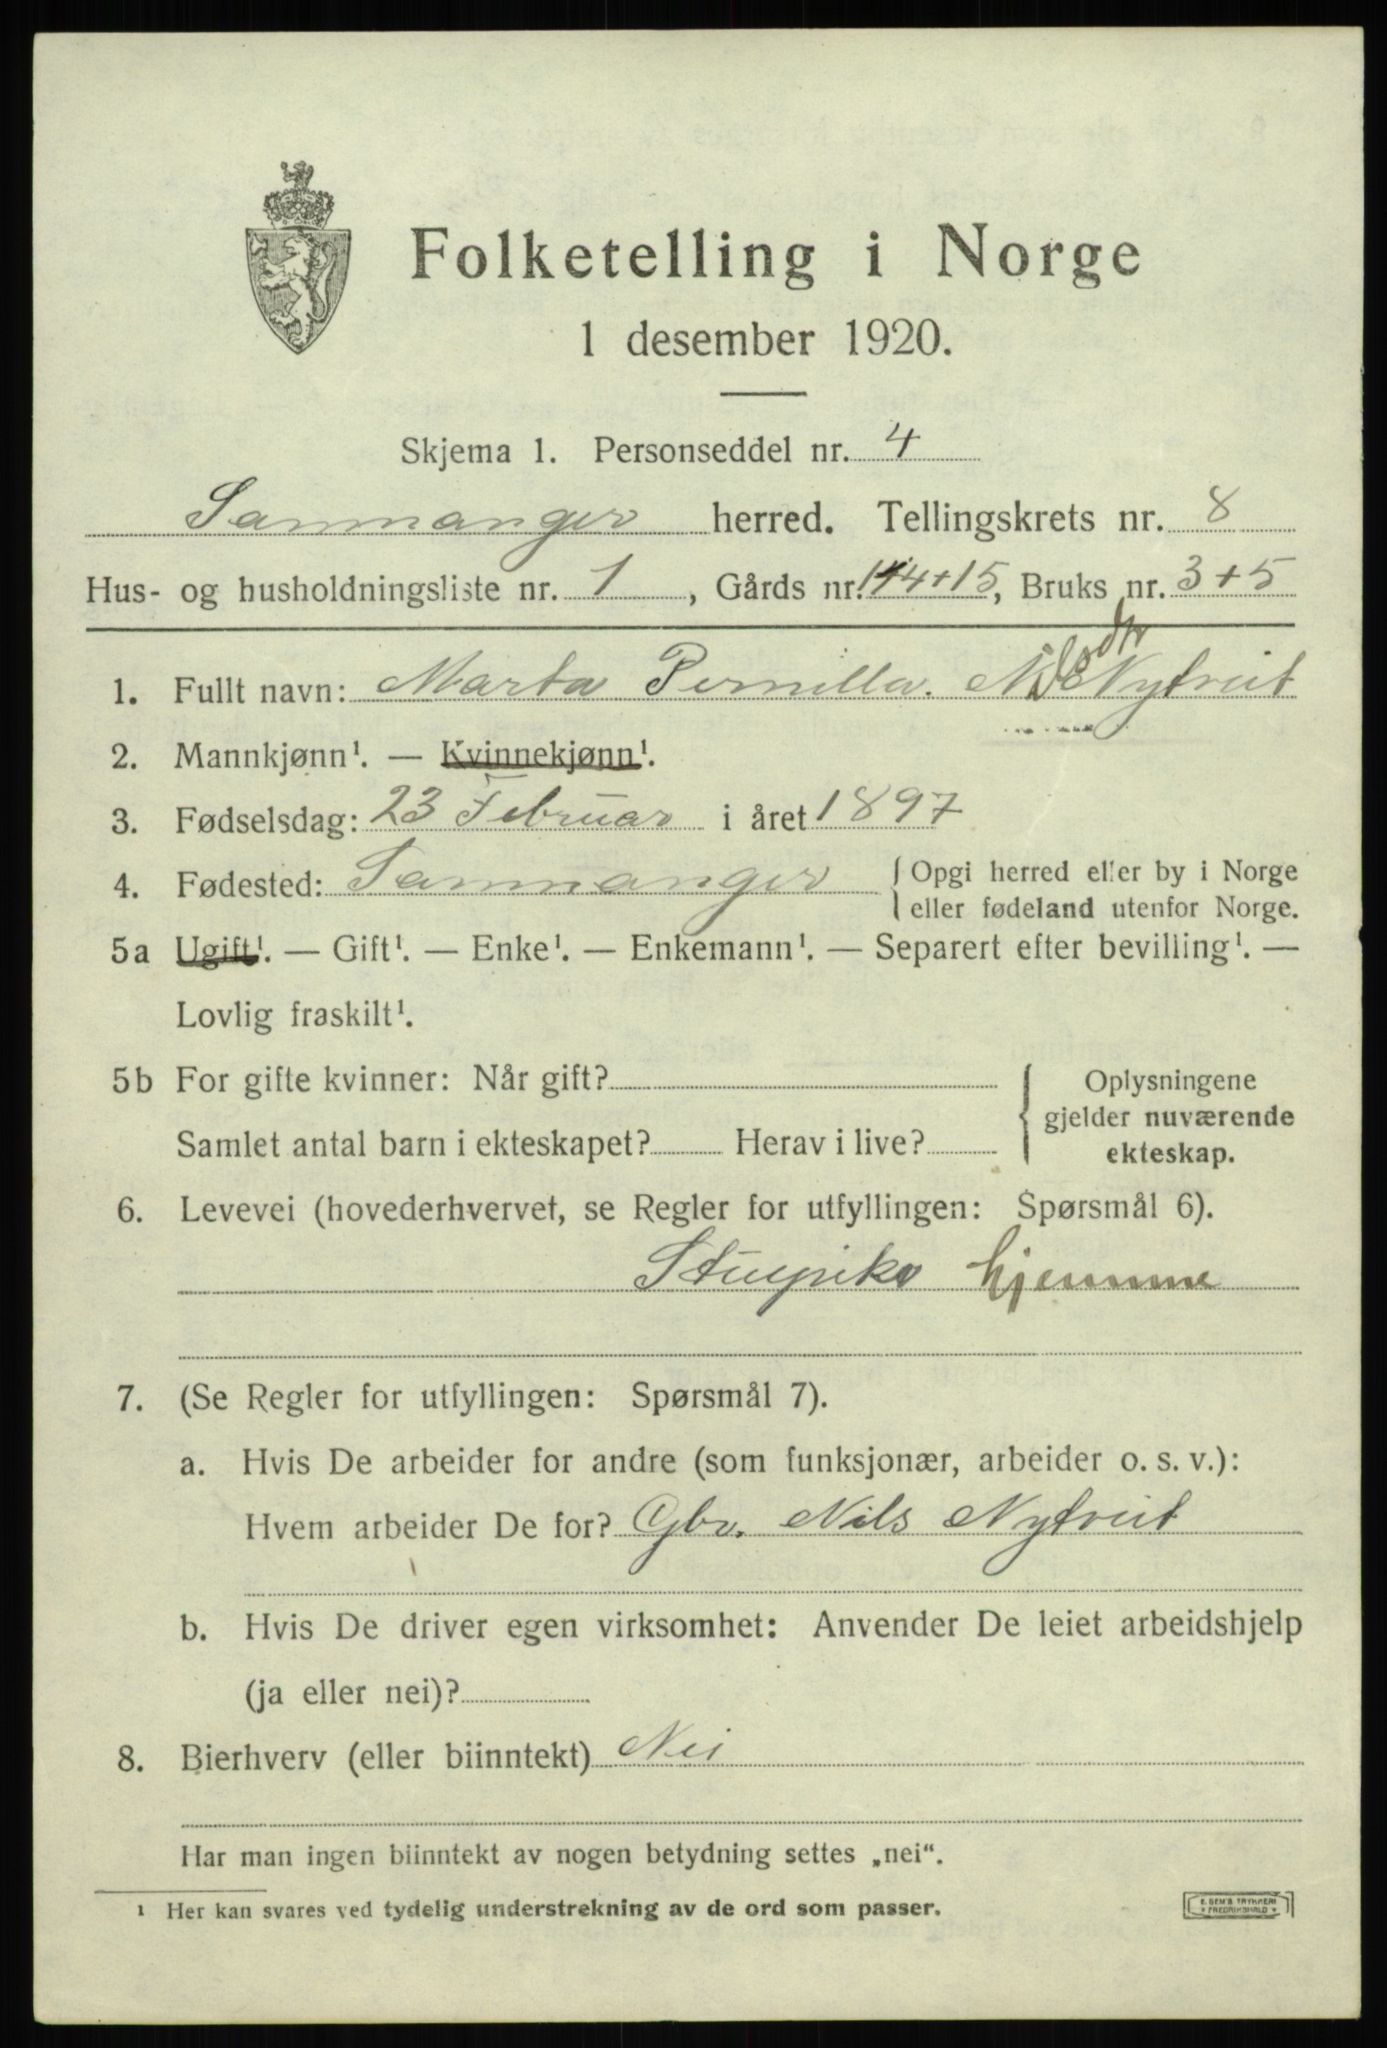 Folketelling i Norge
1 desember 1920.
Skjema 1. Personseddel nr. 4
Samnanger herred. Tellingskrets nr. 8
Hus- og husholdningsliste nr. 1, Gårds nr. 14+15, Bruks nr. 3+5
1. Fullt navn: Marta Pernilla. Nilsdtr Nytveit
2. Mannkjønn¹. — Kvinnekjønn¹.
3. Fødselsdag: 23 Februar i året 1897
4. Fødested: Samnanger { Opgi herred eller by i Norge
eller fødeland utenfor Norge.
5a Ugift¹. — Gift¹. — Enke¹. — Enkemann¹. — Separert efter bevilling¹. —
Lovlig fraskilt¹.
5b For gifte kvinner: Når gift? { Oplysningene
gjelder nuværende
Samlet antal barn i ekteskapet? Herav i live?
ekteskap.
6. Levevei (hovederhvervet, se Regler for utfyllingen: Spørsmål 6).
hjemme
7. (Se Regler for utfyllingen: Spørsmål 7).
a. Hvis De arbeider for andre (som funksjonær, arbeider o. s. v.):
Hvem arbeider De for? Gbr. Nils Nytveit
b. Hvis De driver egen virksomhet: Anvender De leiet arbeidshjelp
(ja eller nei)?
8. Bierhverv (eller biinntekt) Nei
Har man ingen biinntekt av nogen betydning settes „nei“.
¹ Her kan svares ved tydelig understrekning av de ord som passer.
E. SEM'S TRYKKERI
* FREDRIKSHALD *